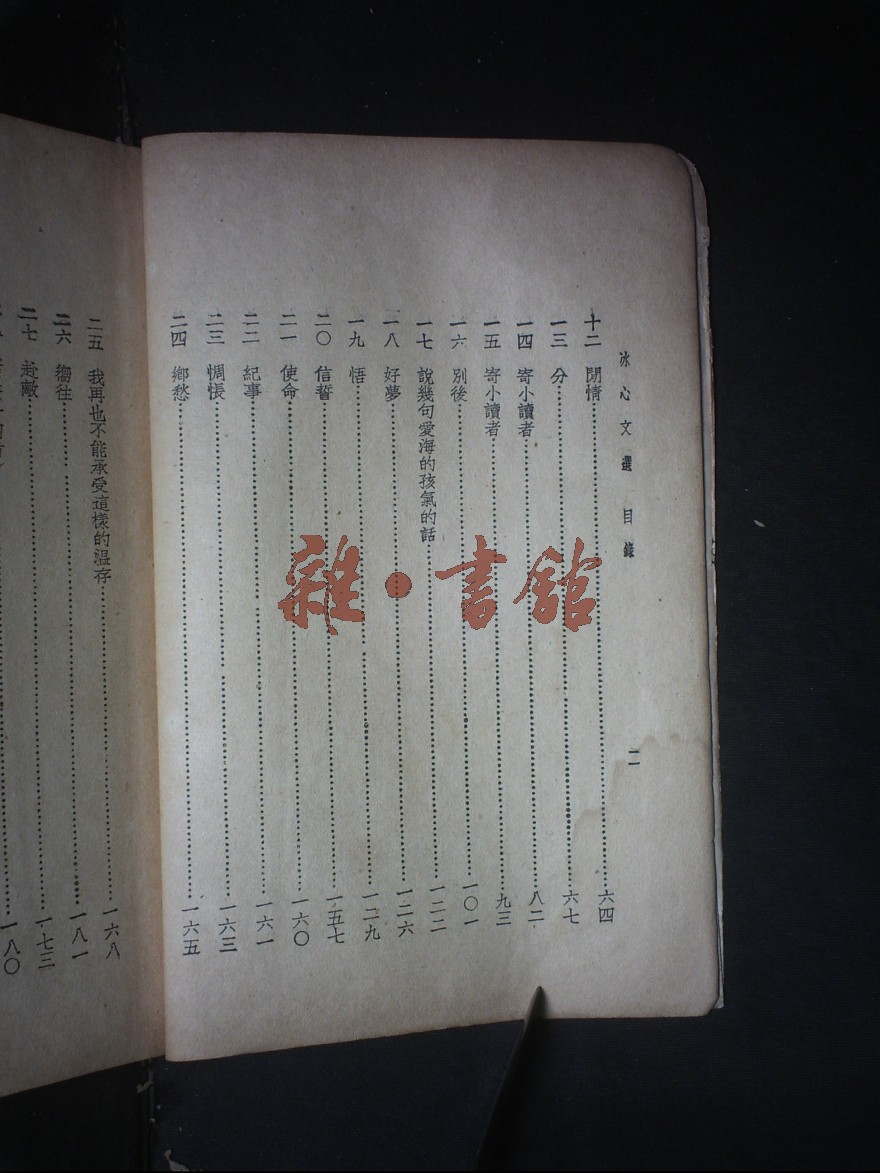 冰心文選 目錄 二
十二 閒情 六四
一三 分 六七
一四 寄小讀者 八二
一五 寄小讀者 九三
一六 別後 一〇一
一七 說幾句愛海的孩氣的話 一二二
一八 好夢 一二六
一九 悟 一二九
二〇 信誓 一五七
二一 使命 一六〇
二二 紀事 一六一
二三 惆悵 一六三
二四 鄉愁 一六五
二五 我再也不能承受這樣的溫存 一六八
二六 嚮往 一八一
二七 赴敵 一七三
一八〇
雜·書館